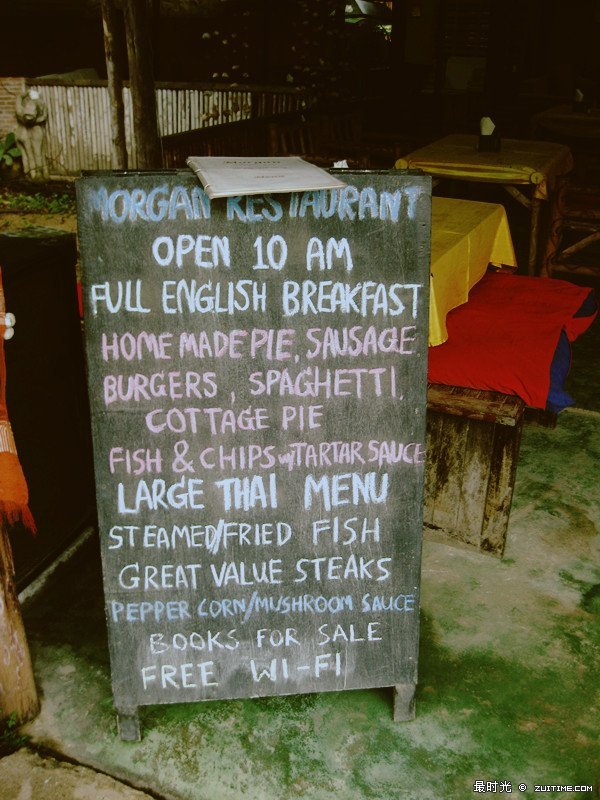 MORGAN RESTAURANT
OPEN 10 AM
FULL ENGLISH BREAKFAST
HOME MADE PIE, SAUSAGE
BURGERS, SPAGHETTI,
COTTAGE PIE
FISH & CHIPS W/ TARTAR SAUCE
LARGE THAI MENU
STEAMED/FRIED FISH
GREAT VALUE STEAKS
PEPPER CORN/MUSHROOM SAUCE
BOOKS FOR SALE
FREE WI-FI
最时光 © ZUITIME.COM